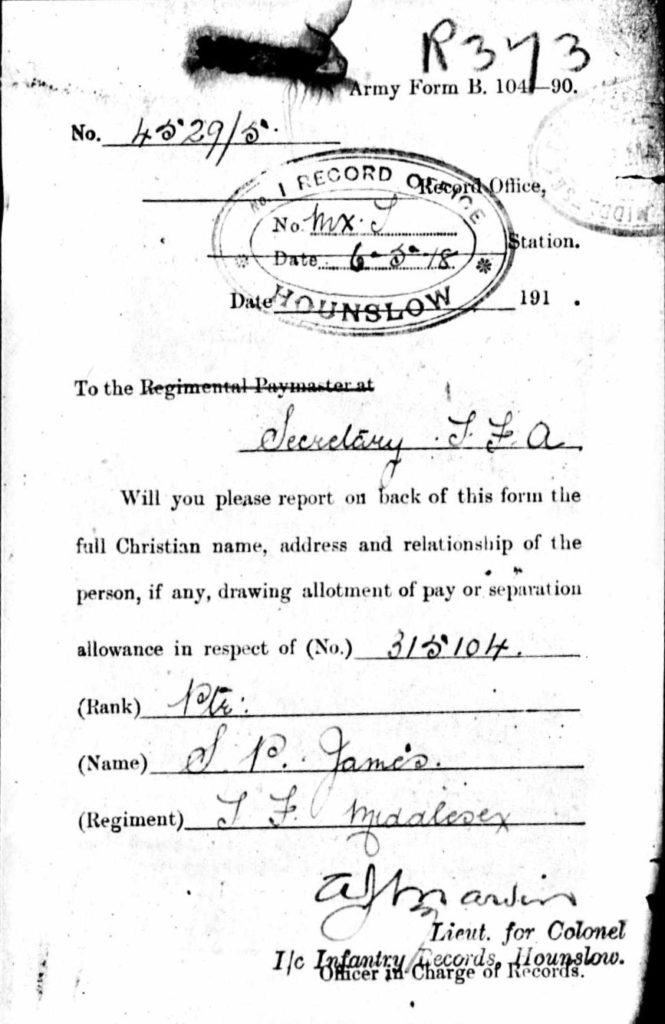 R373
Army Form B. 104—90.
No. 4529/5.
No. 1 RECORD OFFICE
Record Office,
No. Mx. T
Station.
Date 6-5-18
HOUNSLOW
Date 191 .
To the Regimental Paymaster at
Secretary T. F. A.
Will you please report on back of this form the
full Christian name, address and relationship of the
person, if any, drawing allotment of pay or separation
allowance in respect of (No.) 315104.
(Rank) Pte.
(Name) S P. James.
(Regiment) T F. Middlesex
Lieut. for Colonel
I/c Infantry Records, Hounslow.
Officer in Charge of Records.